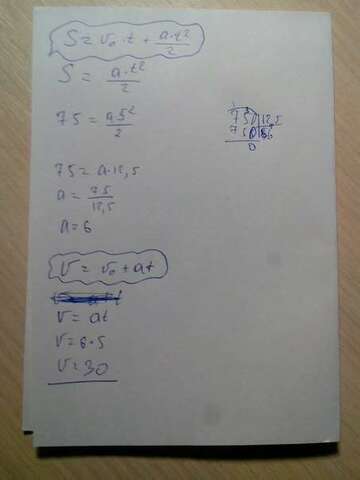 S = v₀ · t + a·t²/2
S = a·t²/2
75 = a·5²/2
75 = a·12,5
a = 75/12,5
a = 6
V = v₀ + at
V = at
V = 6·5
V = 30
750 12,5
750 6
0